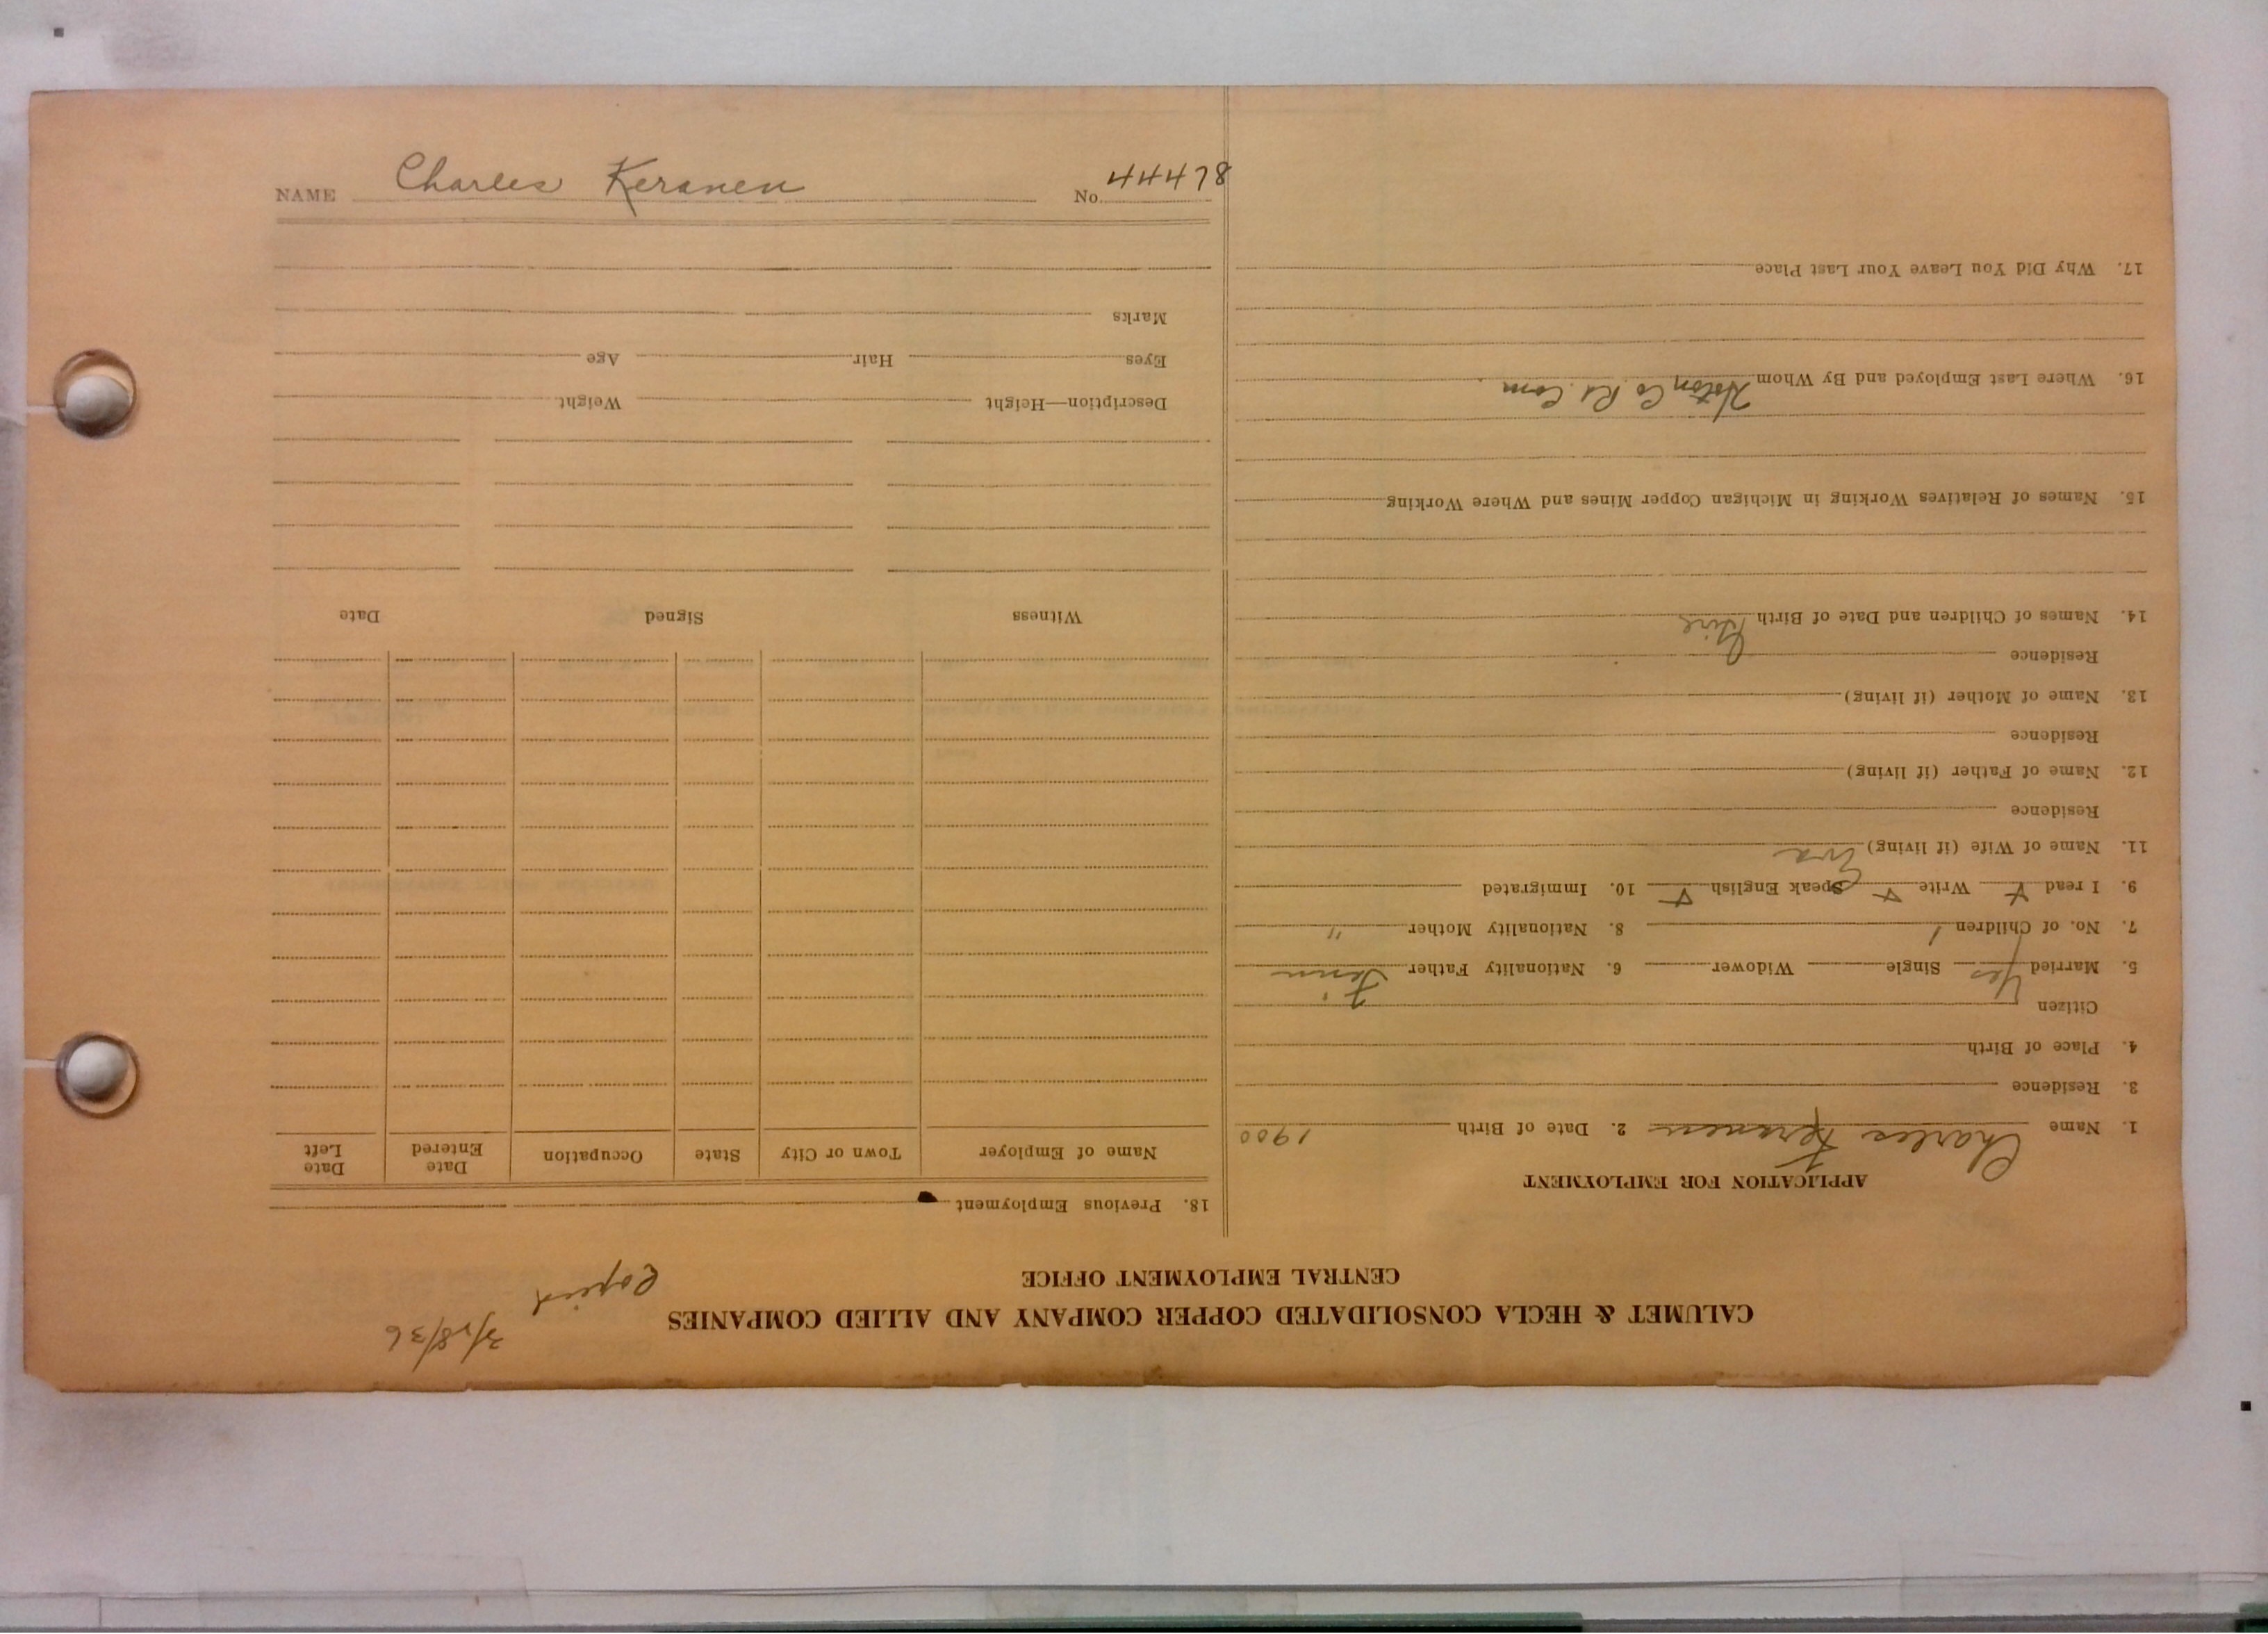 NAME Charles Keranen No. 44478
CALUMET & HECLA CONSOLIDATED COPPER COMPANY AND ALLIED COMPANIES
CENTRAL EMPLOYMENT OFFICE
Copied
3/18/36
APPLICATION FOR EMPLOYMENT
1. Name Charles Keranen 2. Date of Birth 1900
3. Residence
4. Place of Birth
Citizen
5. Married Yes Single Widower 6. Nationality Father Finn
7. No. of Children 1 8. Nationality Mother "
9. I read Write Speak English 10. Immigrated
11. Name of Wife (if living) Eva
Residence
12. Name of Father (if living)
Residence
13. Name of Mother (if living)
Residence
14. Names of Children and Date of Birth
15. Names of Relatives Working in Michigan Copper Mines and Where Working
16. Where Last Employed and By Whom Hoton Co Rd. Com
17. Why Did You Leave Your Last Place
18. Previous Employment
Name of Employer Town or City State Occupation Date Entered Date Left
Witness Signed Date
Description—Height Weight
Eyes Hair Age
Marks